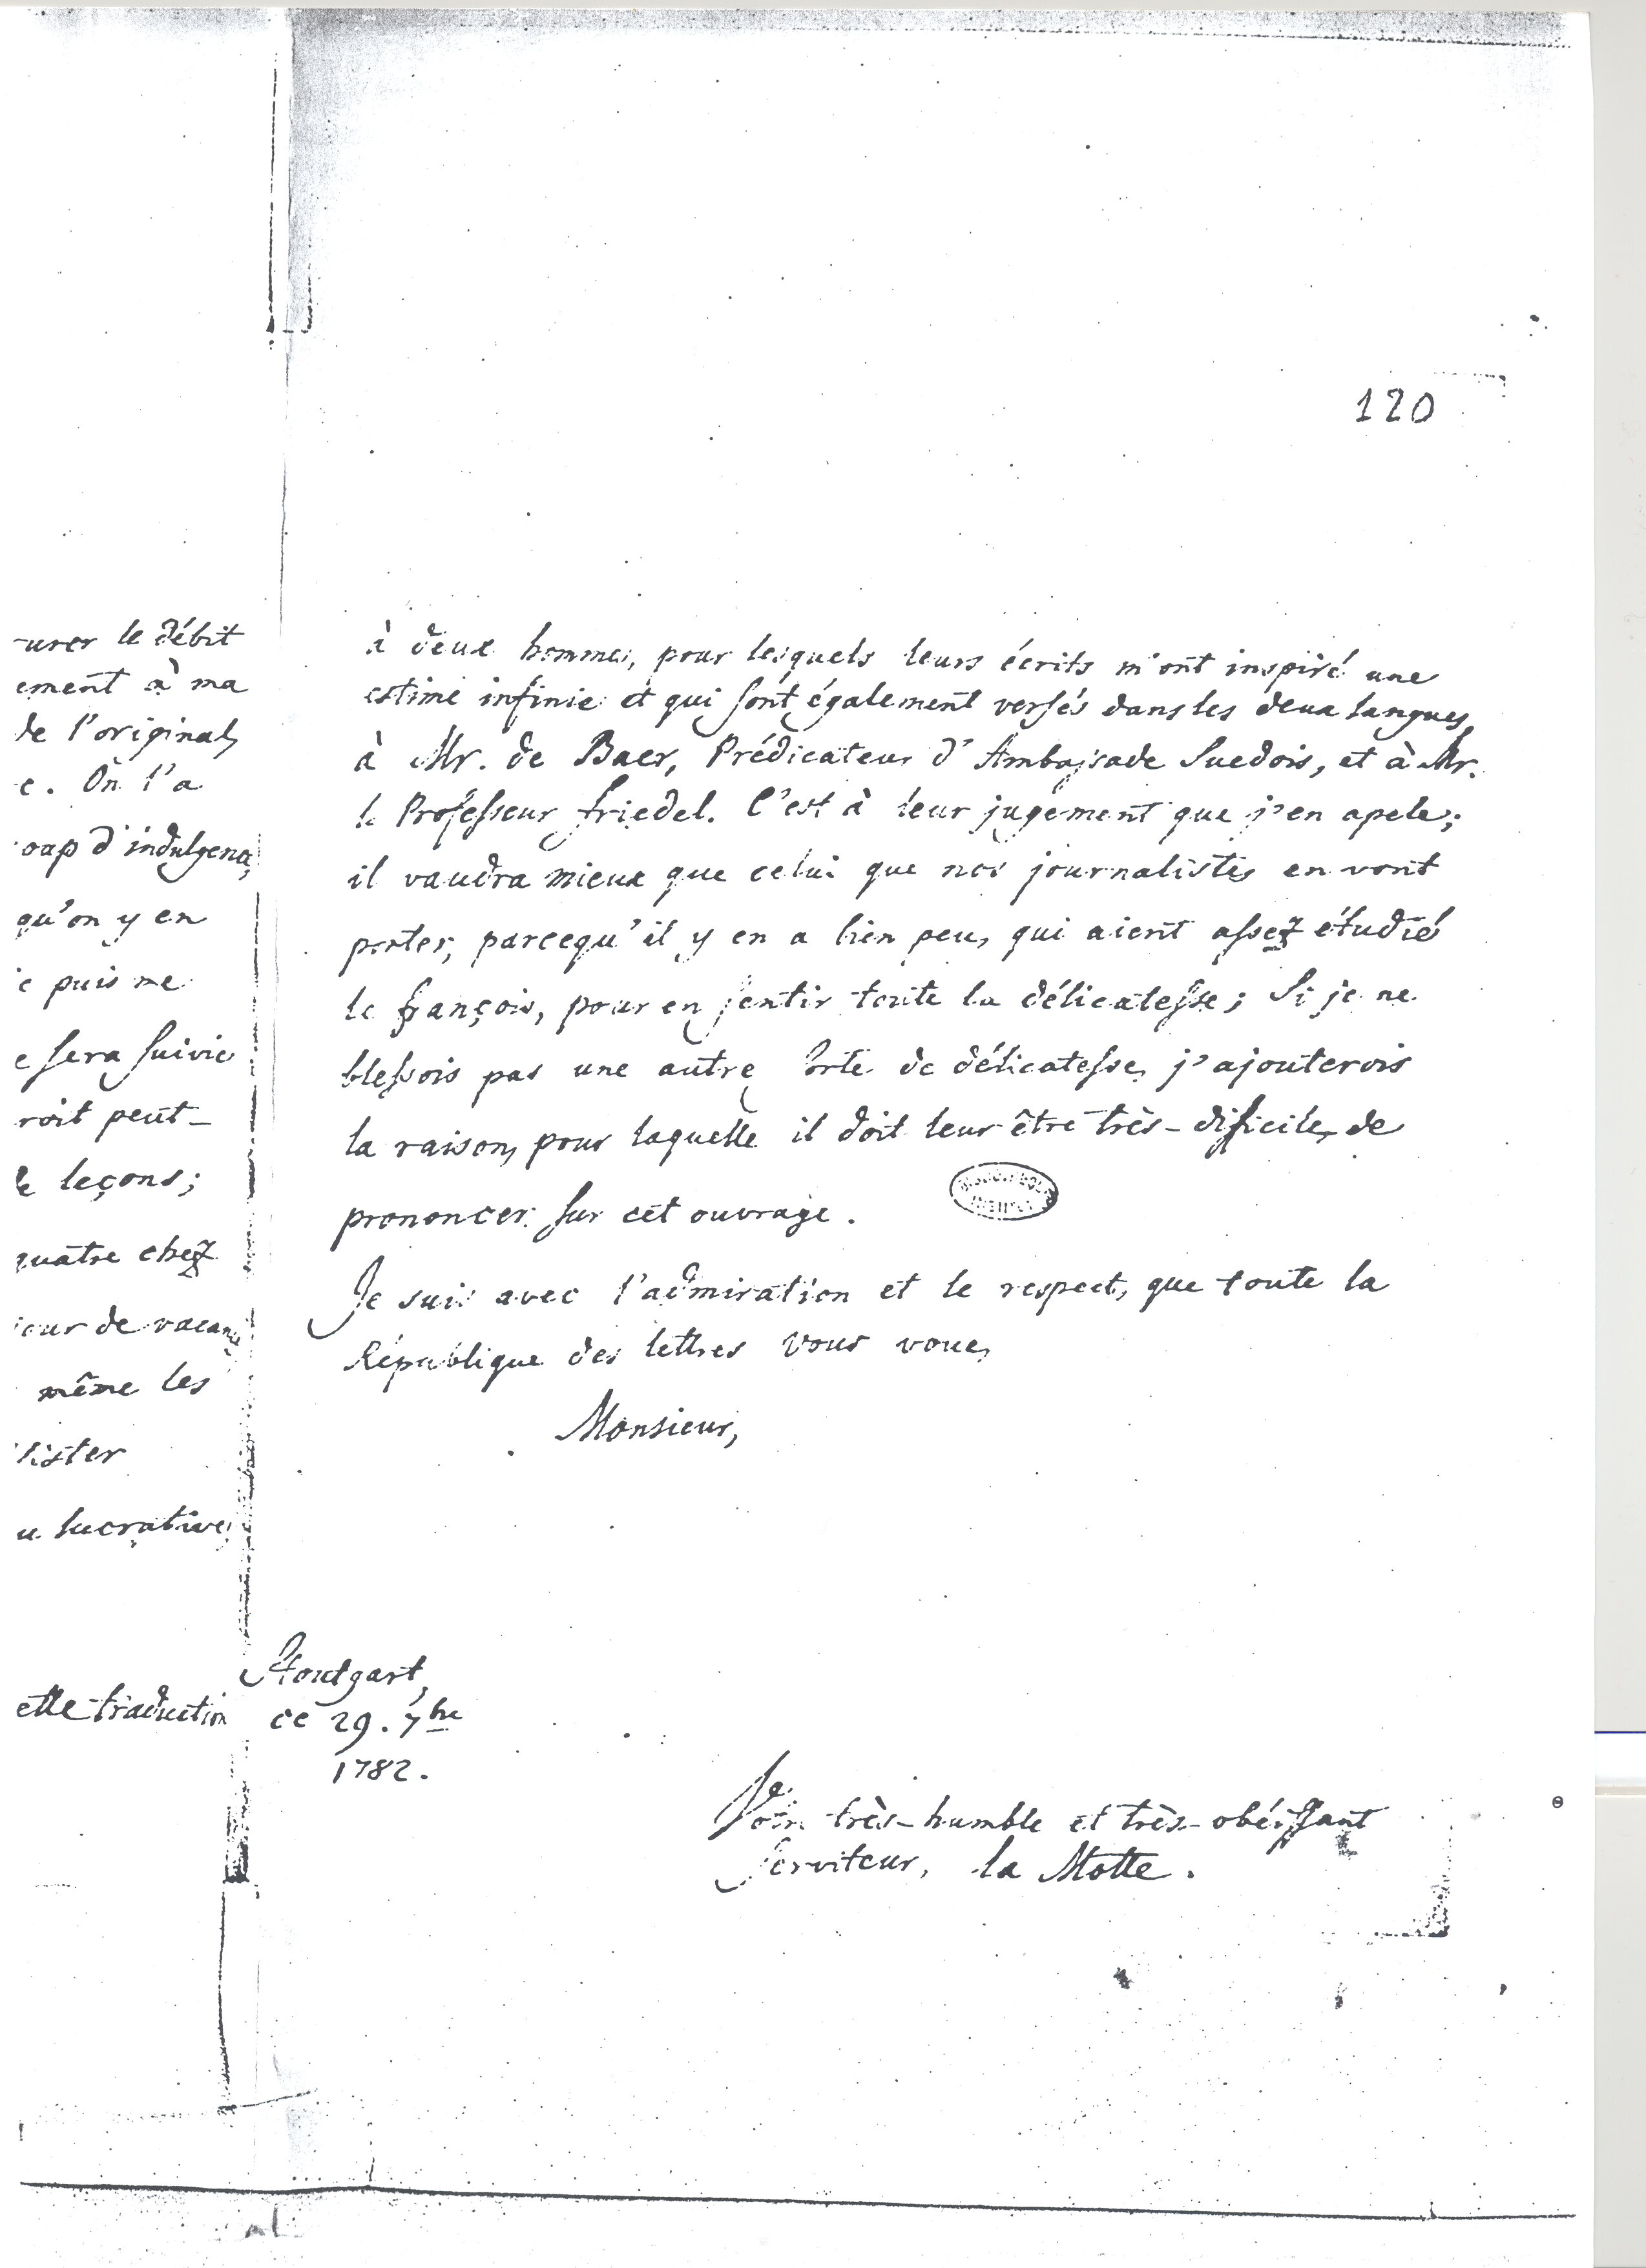 120
-urer le débit
ement à ma
de l'original,
e. On l'a
oup d'indulgence,
qu'on y en
e puis me
e sera suivie
roit peut-
de leçons;
quatre chez
jour de vacance
même les
lister
u lucrative,
ette traduction
à deux hommes, pour lesquels leurs écrits m'ont inspiré une
estime infinie et qui sont également versés dans les deux langues,
à Mr. de Baer, Prédicateur d'Ambassade Suedois, et à Mr.
le Professeur Friedel. C'est à leur jugement que j'en apele;
il vaudra mieux que celui que nos journalistes en vont
porter, parcequ'il y en a bien peu, qui aient assez étudié
le françois, pour en sentir toute la délicatesse; Si je ne
blessois pas une autre sorte de délicatesse, j'ajouterois
la raison, pour laquelle il doit leur être très-dificile, de
prononcer sur cet ouvrage.
Je suis avec l'admiration et le respect, que toute la
République des lettres vous voue,
Monsieur,
Stoutgart,
ce 29. 7bre
1782.
Votre très-humble et très-obéissant
serviteur, la Motte.